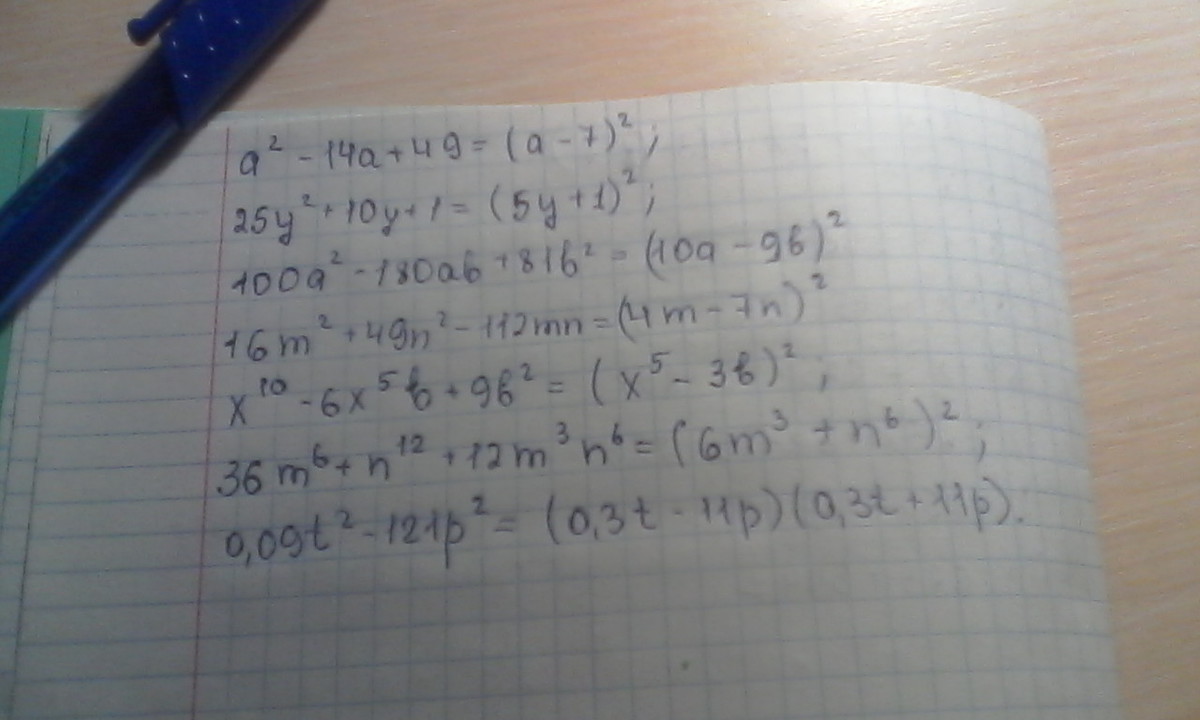 a² - 14a + 49 = (a - 7)²;
25y² + 10y + 1 = (5y + 1)²;
100a² - 180ab + 81b² = (10a - 9b)²
16m² + 49n² - 112mn = (4m - 7n)²
x¹⁰ - 6x⁵b + 9b² = (x⁵ - 3b)²;
36m⁶ + n¹² + 12m³n⁶ = (6m³ + n⁶)²;
0,09t² - 121p² = (0,3t - 11p)(0,3t + 11p).